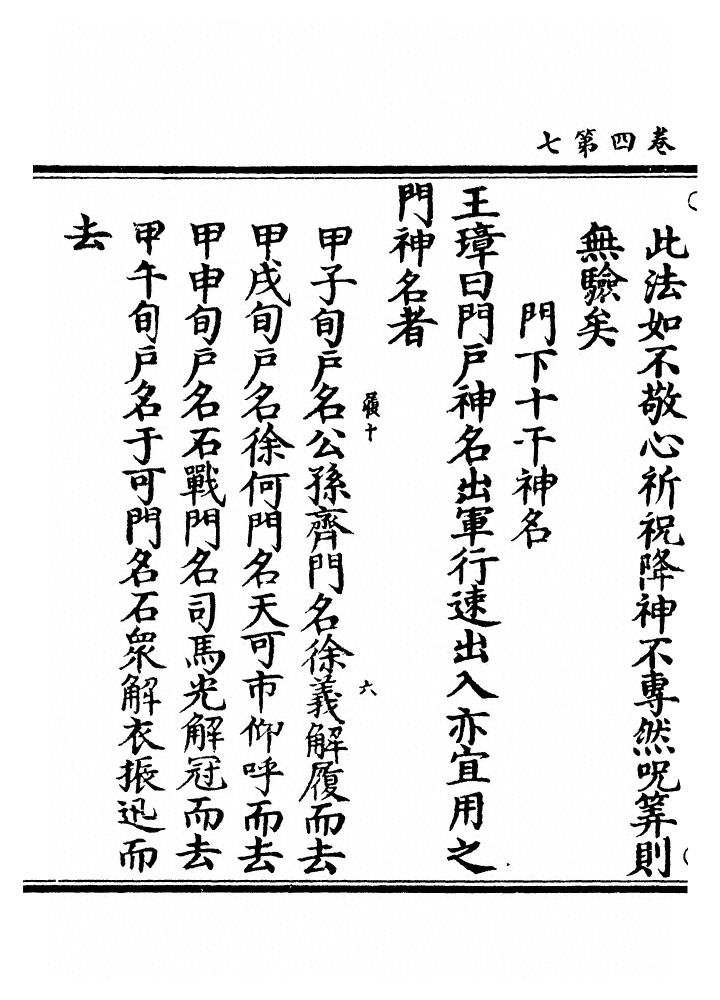 七第四卷
此法如不敬心祈祝降神不專然呪筭則
無驗矣
門下十干神名
王璋曰門戶神名出軍行速出入亦宜用之
門神名者
甲子旬戶名公孫齊門名徐義解履而去
十
六
甲戌旬戶名徐何門名天可市仰呼而去
甲申旬戶名石戰門名司馬光解冠而去
甲午旬戶名于可門名石眾解衣振迅而
去